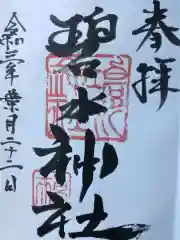 奉拝
碧水神社
令和三年葉月二十一日